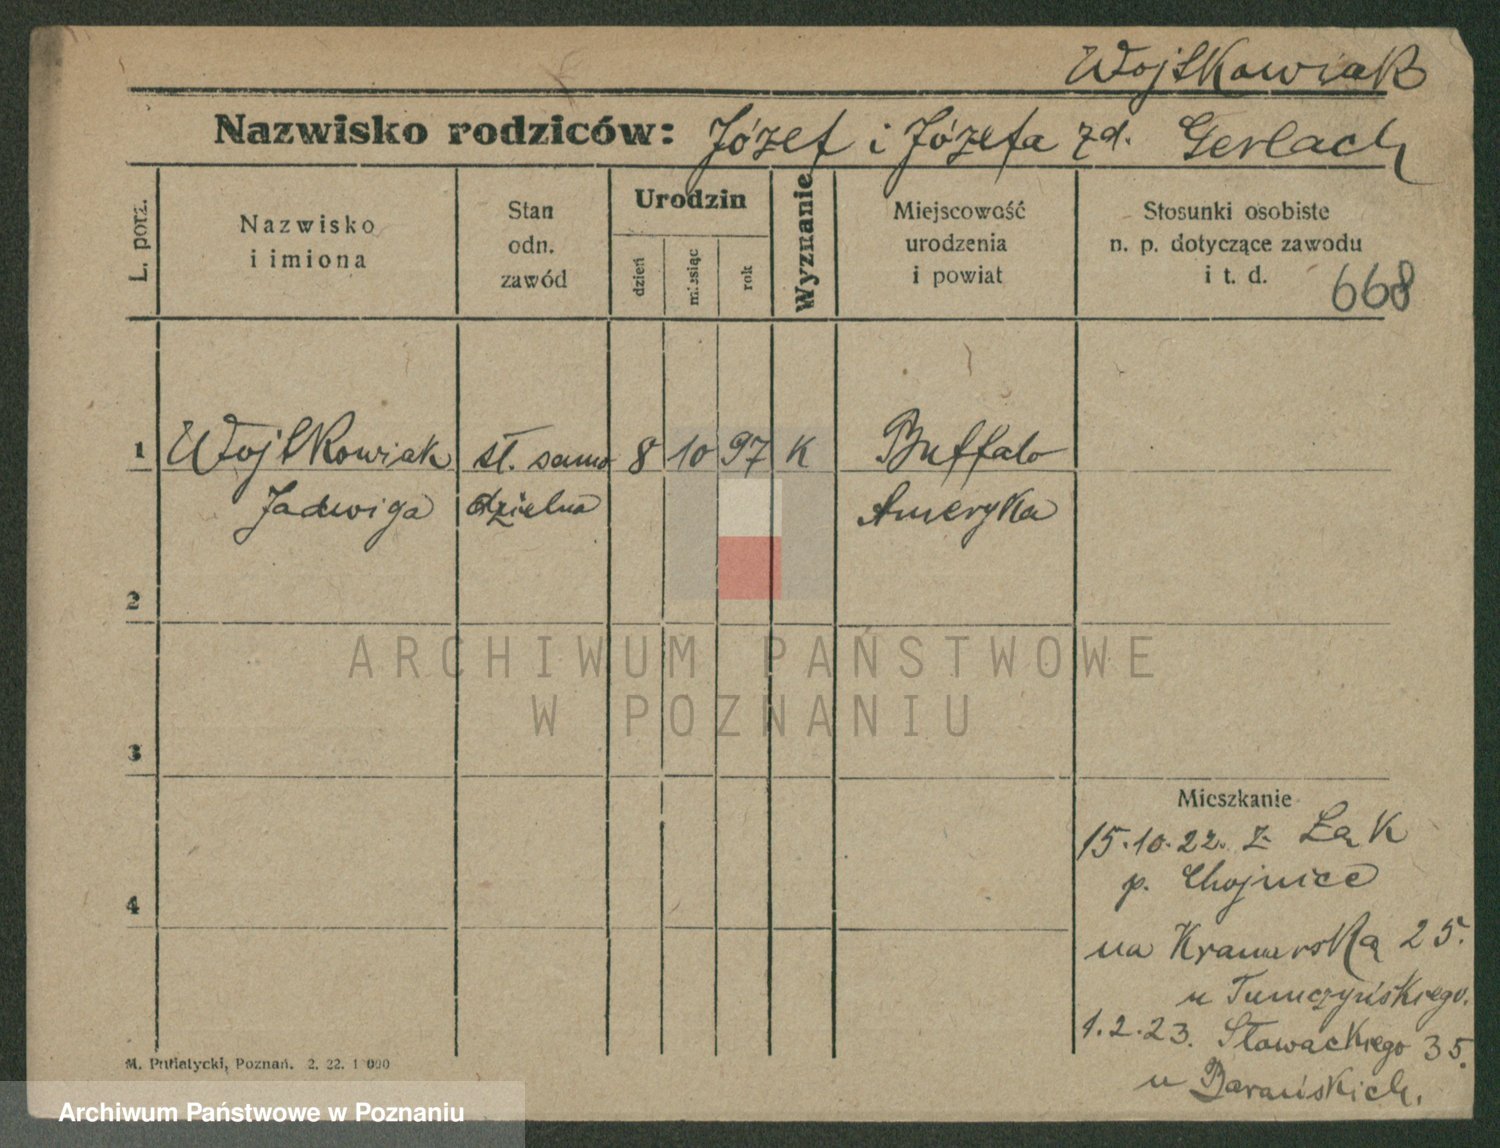 Wojtkowiak
Nazwisko rodziców: Józef i Józefa zd. Gerlach
L. porz.
Nazwisko
i imiona
Stan
odn.
zawód
Urodzin
dzień
miesiąc
rok
Wyznanie
Miejscowość
urodzenia
i powiat
Stosunki osobiste
n. p. dotyczące zawodu
i t. d.
668
1 Wojtkowiak st. samo 8 10 97 K Buffalo
Jadwiga dzielna Ameryka
2
ARCHIWUM PAŃSTWOWE
W POZNANIU
3
Mieszkanie
15.10.22. z Łąk
p. Chojnice
4
na Kramarską 25.
u Tumczyńskiego.
1.2.23. Słowackiego 35.
u Barańskich.
M. Putiatycki, Poznań. 2. 22. 1000
Archiwum Państwowe w Poznaniu